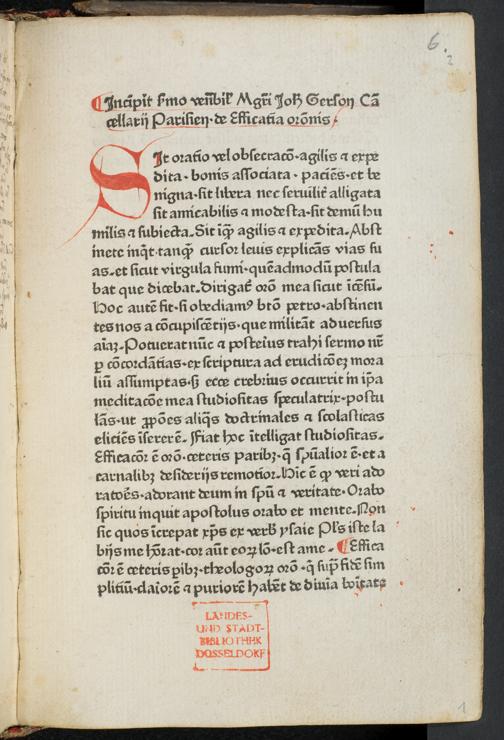 6.
2
Incipit s̄mo ven̄bil' Mgr̄i Joh̄ Gerson Cā
cellarij Parisien̄ · de Efficatia orōnis ·
Sit oratio vel obsecracō · agilis ⁊ expe
dita · bonis associata · paciēs · et be
nigna · sit libera nec seruilit̄ alligata
sit amicabilis ⁊ modesta · sit demū hu
milis ⁊ subiecta · Sit iq̄ agilis ⁊ expedita · Abst
inete inq̄t · tanq̄ cursor leuis explicās vias su
as · et sicut virgula fumi · quēadmodū postula
bat que dicebat · Dirigat̄ orō mea sicut īcēsū ·
Hoc autē fit · si obediamꝰ btō petro · abstinen
tes nos a cōcupiscētijs · que militāt aduersus
aīaʒ · Potuerat nūc ⁊ posterius trahi sermo nr̄
p̄ cōcordātias · ex scriptura ad erudicōeʒ mora
liū assumptas · sʒ ecce crebrius occurrit in ip̄a
meditacōe mea studiositas speculatrix · postu
lās · ut ꝓpōes aliq̄s doctrinales ⁊ scolasticas
eliciēs īsererē · Fiat hoc ītelligat studiositas ·
Efficacōr̄ ē orō · ceteris paribʒ · q̄ sp̄ualior ē · et a
carnalibʒ desiderijs remotior · Hic ē q̄ veri ado
ratoēs · adorant deum in sp̄ū ⁊ veritate · Orabo
spiritu inquit apostolus orabo et mente · Non
sic quos īcrepat xp̄s ex verb̄ ysaie Pl's iste la
bijs me hōrat · cor aūt eoꝝ lō · est a me · Effica
cōr̄ ē ceteris p̄ibʒ · theologoꝝ orō · q̄ sup̄ fidē sim
plitiū · claiorē ⁊ puriorē habēt de diuīa bōitate
LANDES-
UND STADT-
BIBLIOTHEK
DÜSSELDORF
1